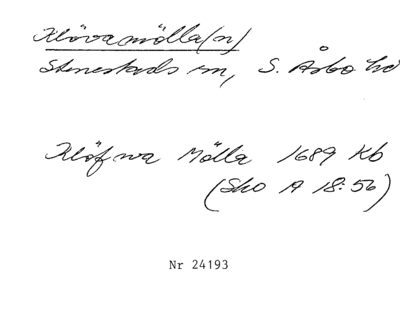 Klövamölla(n)
Stenestads sn, S. Åsbo hd
Klöfwa Mölla 1689 Kb
(Sko A 18:56)
Nr 24193